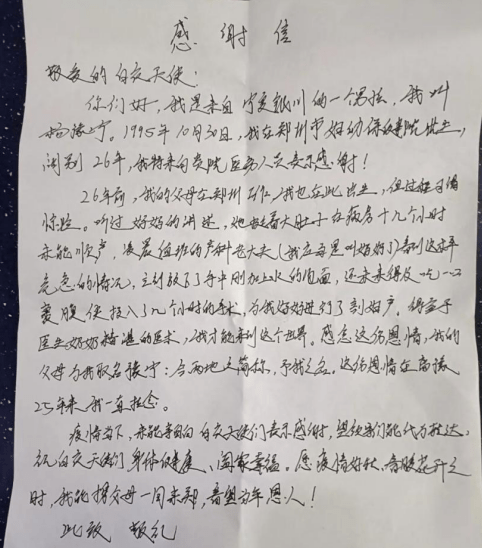 感谢信
敬爱的白衣天使：
你们好，我是来自宁夏银川的一个男孩，我叫
杨豫宁。1995年10月30日，我在郑州市妇幼保健院出生，
阔别26年，我特来向贵院医务人员表示感谢！
26年前，我的父母在郑州工作，我也在此出生，但过程习惯
惊险。听过妈妈的讲述，她挺着大肚子在病房十几个小时
未能顺产，凌晨值班的产科老大夫（我在这里叫奶奶了）看到这次
危急的情况，立刻放下了手中刚加上水的泡面，还未来得及吃一口
裹腹便投入了几个小时的手术，为我妈妈进行了剖妇产。得益于
医生奶奶精湛的医术，我才能来到这个世界。感念这份恩情，我的
父母为我取名豫宁：合两地之简称，予我之名。这份恩情在离豫
25年来我一直挂念。
疫情当下，未能当面向白衣天使们表示感谢，望能代为转达，
祝白衣天使们身体健康、阖家幸福。愿疫情好转、春暖花开之
时，我能携父母一同来郑，看望当年恩人！
此致 敬礼